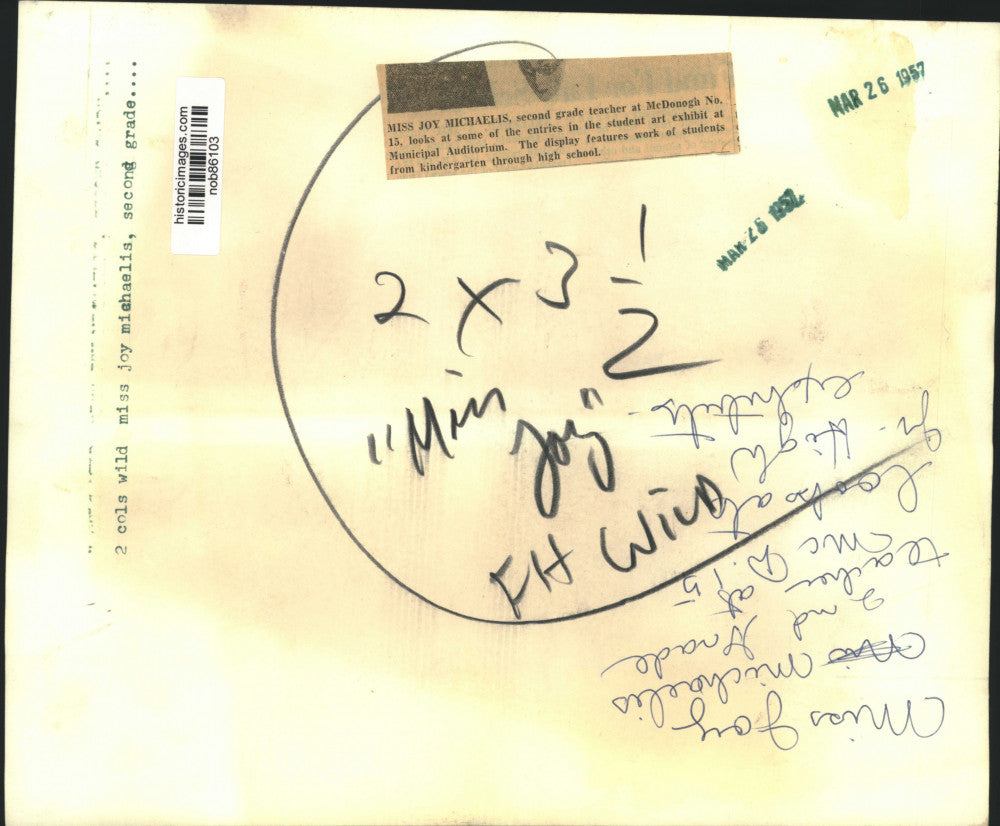 MISS JOY MICHAELIS, second grade teacher at McDonogh No.
15, looks at some of the entries in the student art exhibit at
Municipal Auditorium. The display features work of students
from kindergarten through high school.
MAR 26 1957
MAR 26 1957
historicimages.com
nob86103
2 cols wild miss joy michaelis, second grade....
2 x 3 1/2
"Miss
Joy"
FH WILD
Miss Joy
Michaelis
2nd Grade
teacher at
Mc D. 15
looks at
Jr. High
exhibits.